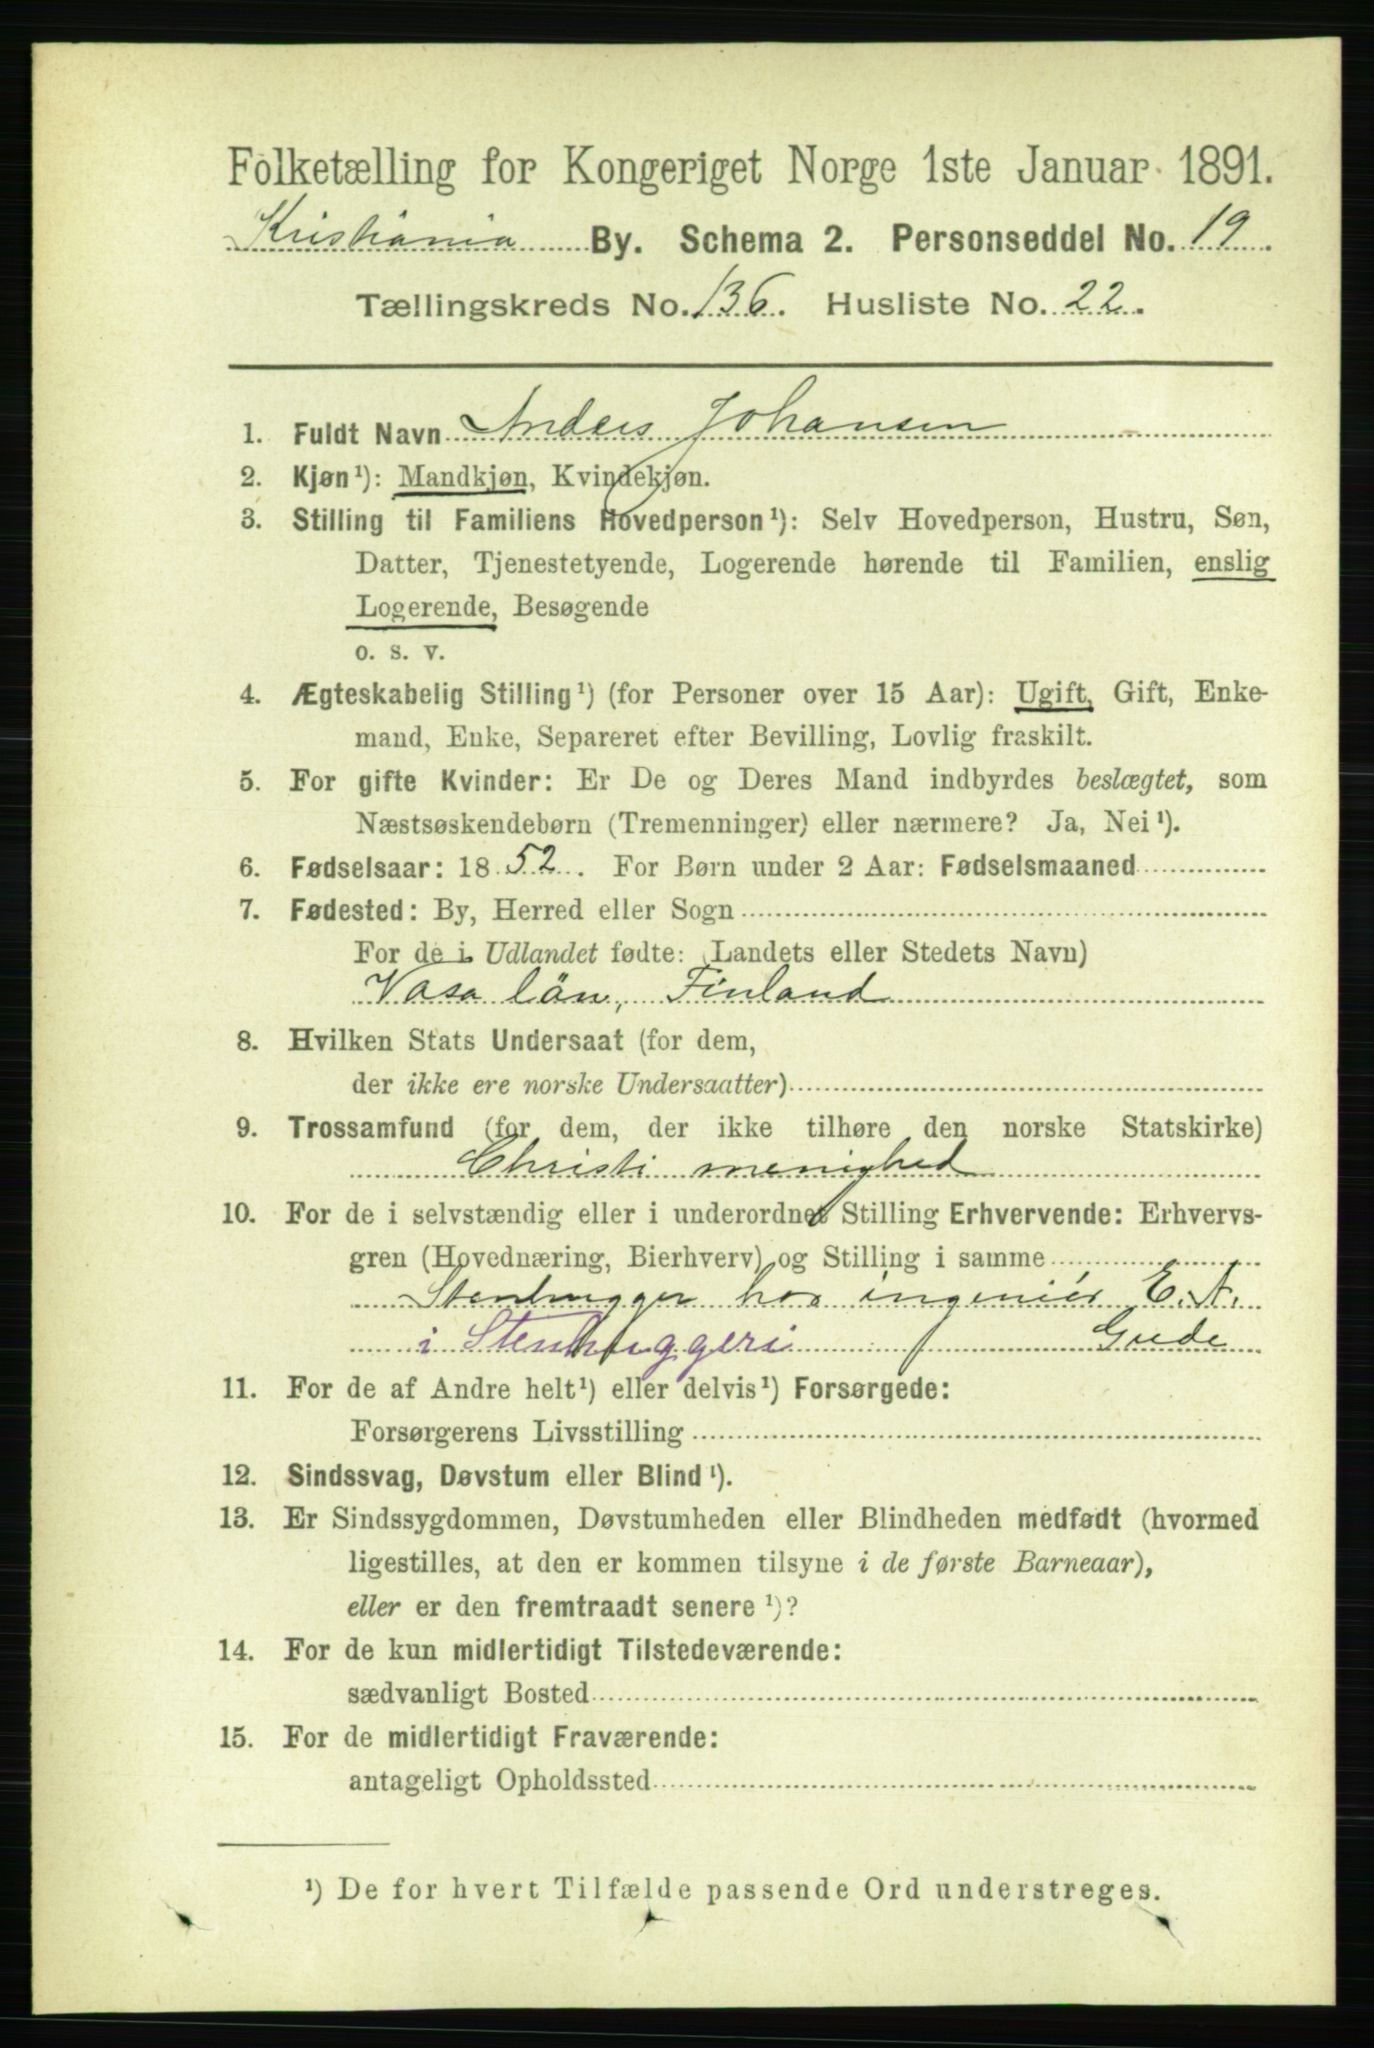 Folketælling for Kongeriget Norge 1ste Januar 1891.
Kristiania By. Schema 2. Personseddel No. 19.
Tællingskreds No. 136. Husliste No. 22.
1. Fuldt Navn Anders Johansen
2. Kjøn¹): Mandkjøn, Kvindekjøn.
3. Stilling til Familiens Hovedperson¹): Selv Hovedperson, Hustru, Søn,
Datter, Tjenestetyende, Logerende hørende til Familien, enslig
Logerende, Besøgende
o. s. v.
4. Ægteskabelig Stilling¹) (for Personer over 15 Aar): Ugift, Gift, Enke-
mand, Enke, Separeret efter Bevilling, Lovlig fraskilt.
5. For gifte Kvinder: Er De og Deres Mand indbyrdes beslægtet, som
Næstsøskendebørn (Tremenninger) eller nærmere? Ja, Nei¹).
6. Fødselsaar: 1852. For Børn under 2 Aar: Fødselsmaaned
7. Fødested: By, Herred eller Sogn
For de i Udlandet fødte: (Landets eller Stedets Navn)
Vasa län, Finland
8. Hvilken Stats Undersaat (for dem,
der ikke ere norske Undersaatter)
9. Trossamfund (for dem, der ikke tilhøre den norske Statskirke)
Christi menighed
10. For de i selvstændig eller i underordnet Stilling Erhvervende: Erhvervs-
gren (Hovednæring, Bierhverv) og Stilling i samme
Stenhugger hos ingeniör E. A.
i Stenhuggeri Gude
11. For de af Andre helt¹) eller delvis¹) Forsørgede:
Forsørgerens Livsstilling
12. Sindssvag, Døvstum eller Blind¹).
13. Er Sindssygdommen, Døvstumheden eller Blindheden medfødt (hvormed
ligestilles, at den er kommen tilsyne i de første Barneaar),
eller er den fremtraadt senere¹)?
14. For de kun midlertidigt Tilstedeværende:
sædvanligt Bosted
15. For de midlertidigt Fraværende:
antageligt Opholdssted
¹) De for hvert Tilfælde passende Ord understreges.